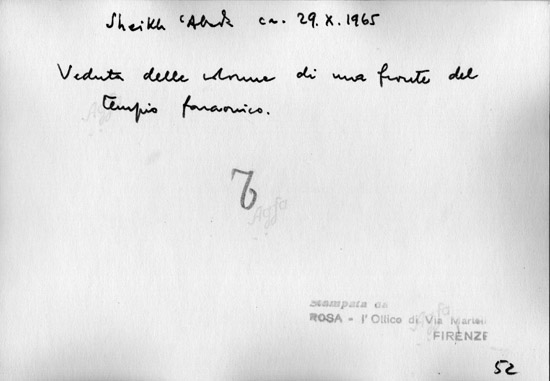 Sheikh 'Abd ca. 29.X.1965
Veduta delle colonne di una fronte del
tempio faraonico.
Agfa
Agfa
Stampata da
Agfa
ROSA - l'Ottico di Via
FIRENZE
52